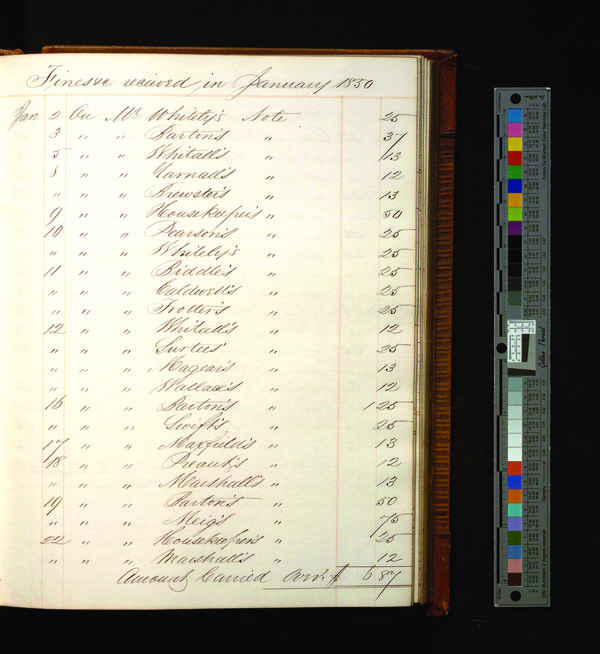 Fines &c received in January 1850
Jan 2 On Mr Whitely's Note 25
3 " " Barton's " 37
5 " " Whitall's " 13
8 " " Yarnall's " 12
" " " Brewster's " 13
9 " " Housekeeper's " 50
10 " " Pearson's " 25
" " " Whitely's " 25
11 " " Biddle's " 25
" " " Caldwell's " 25
" " " Trotter's " 25
12 " " Whitall's " 12
" " " Surtees' " 25
" " " Magear's " 13
" " " Wallace's " 12
16 " " Barton's " 1 25
" " " Swift's " 25
17 " " Maxfield's " 13
18 " " Preaut's " 12
" " " Marshall's " 13
19 " " Barton's " 50
" " " Meig's " 75
22 " " Housekeeper's " 25
" " " Marshall's " 12
Amount Carried Over $ 6 87